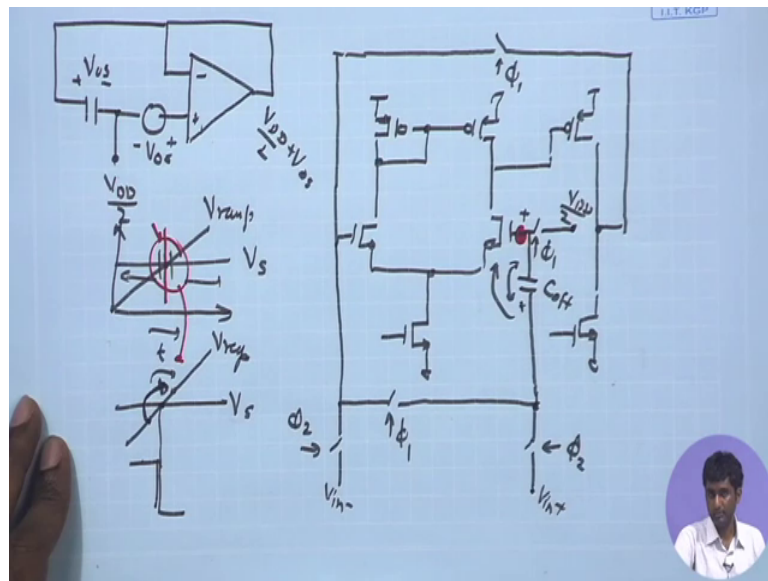 I.I.T. KGP
+ Vos -
-
+
- Vos +
VDD/2 + Vos
VDD/2
Vramp
Vs
t
Vs
Φ1
+
VDD/2
Φ1
Coff
+
Φ2
Φ1
Φ2
Vin-
Vin+